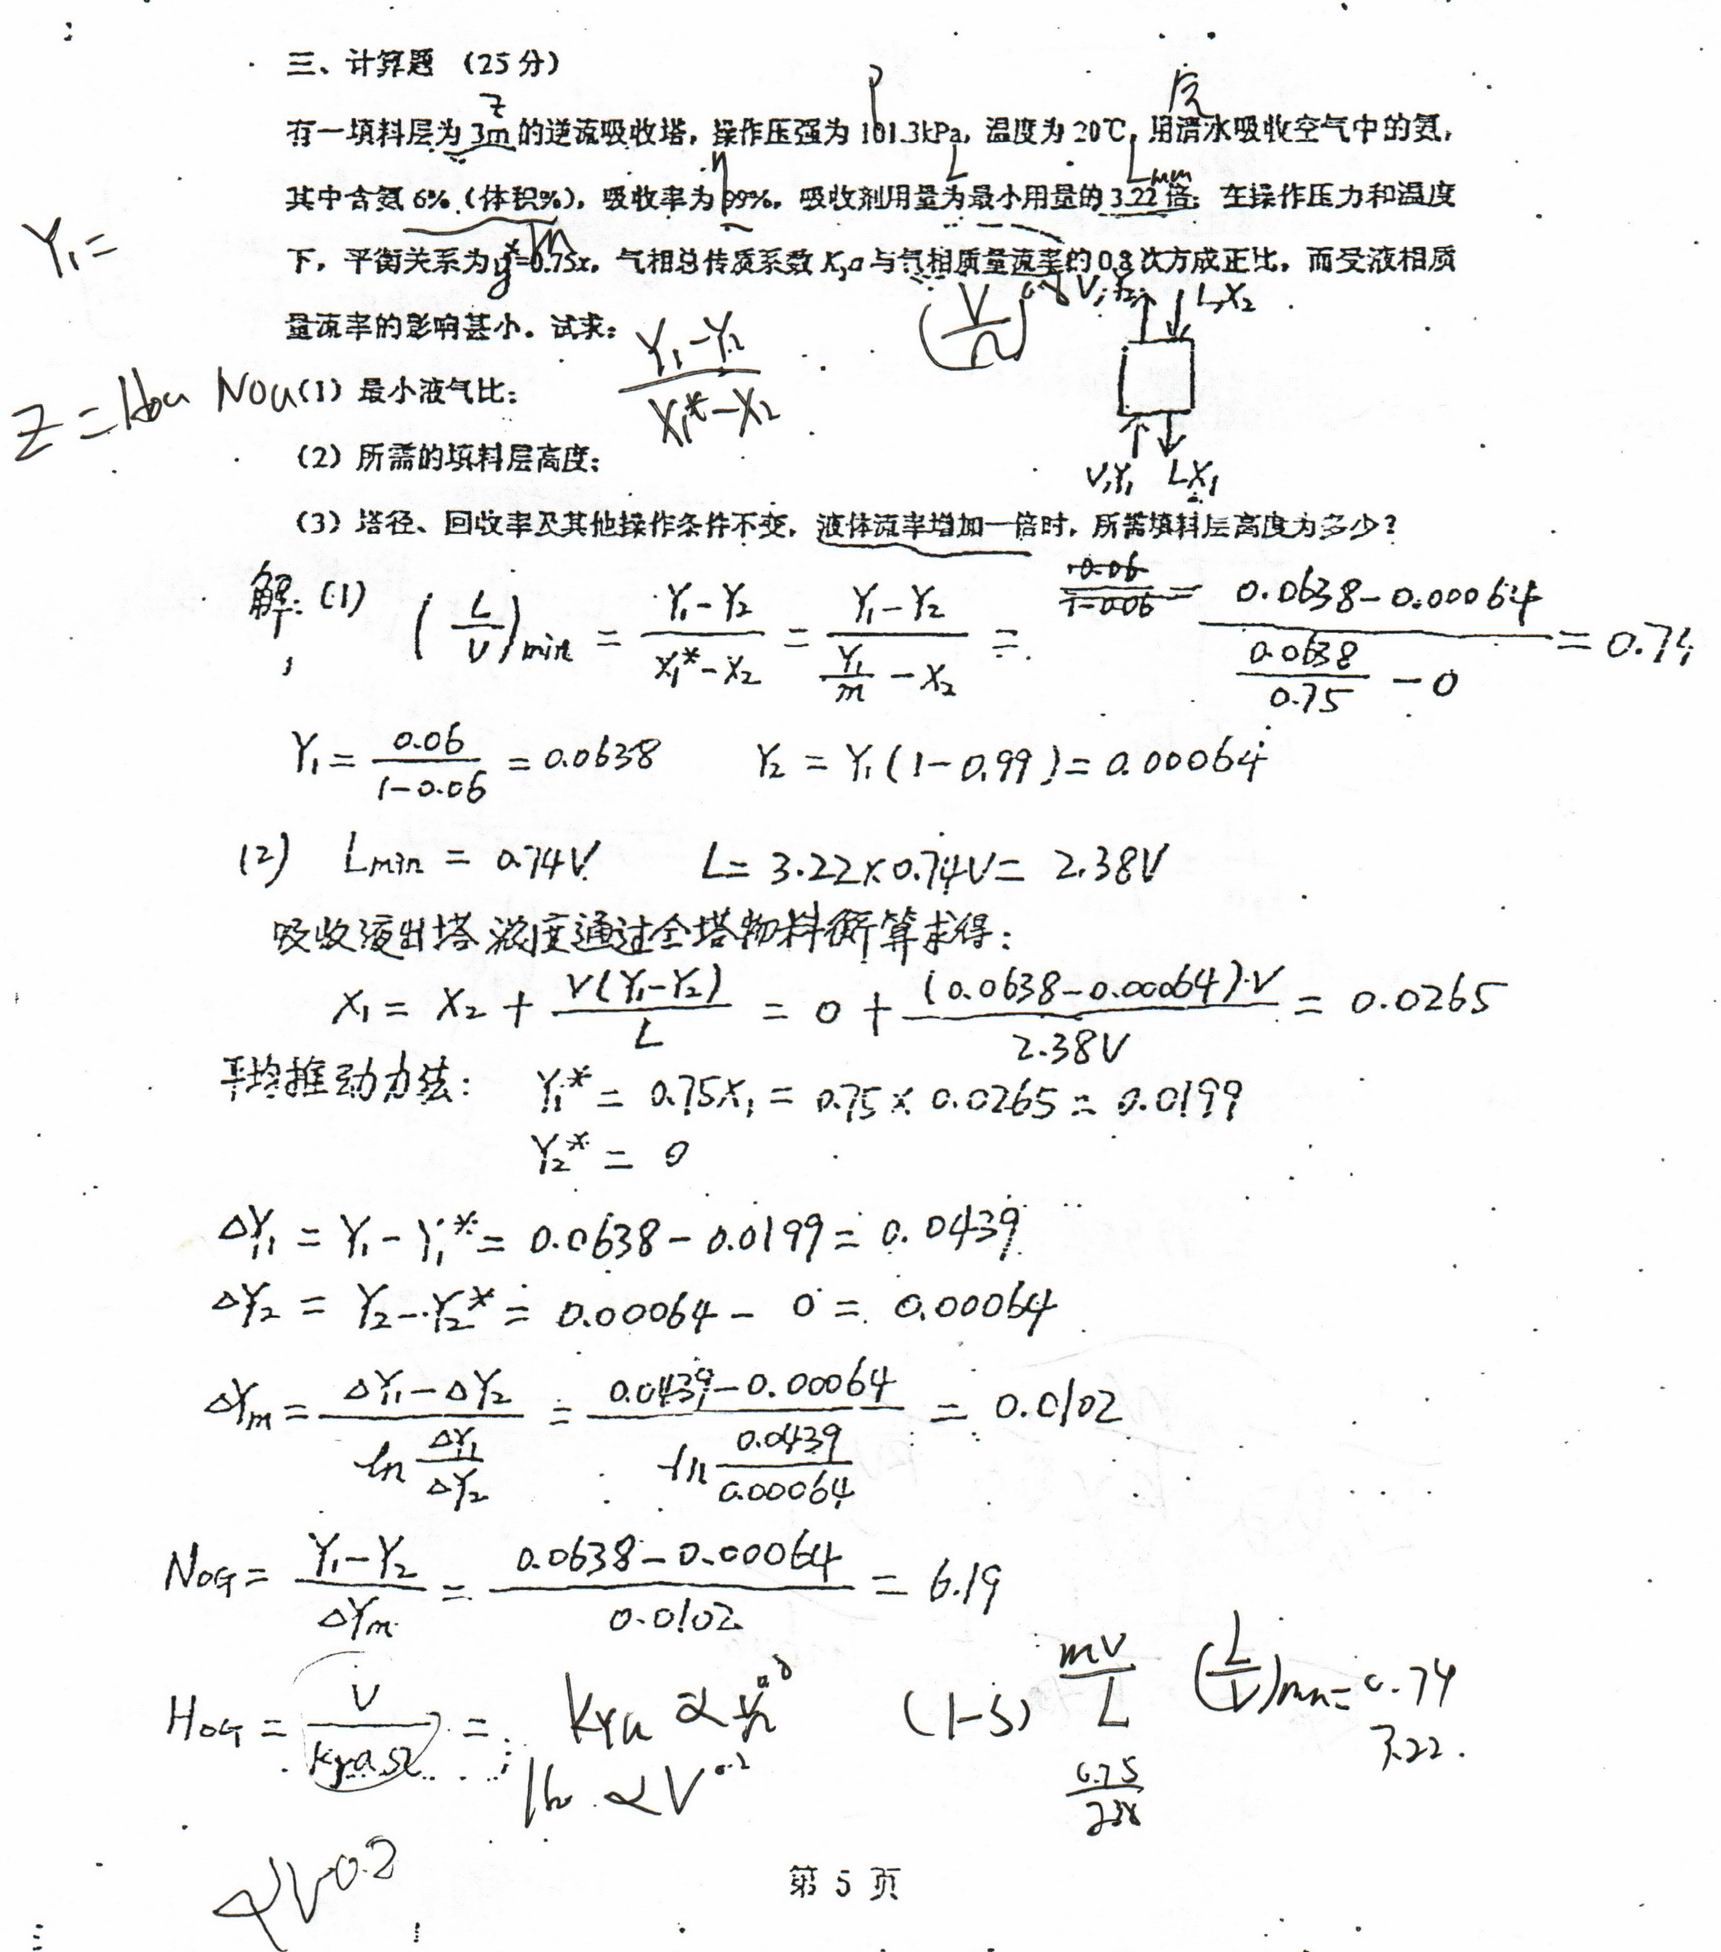 三、计算题 (25分)
有一填料层为3m的逆流吸收塔，操作压强为101.3kPa，温度为20℃，用清水吸收空气中的氨，
其中含氨6%（体积%），吸收率为99%，吸收剂用量为最小用量的3.22倍；在操作压力和温度
下，平衡关系为y*=0.75x，气相总传质系数Kya与气相质量流率的0.8次方成正比，而受液相质
量流率的影响甚小。试求：
(1) 最小液气比；
(2) 所需的填料层高度；
(3) 塔径、回收率及其他操作条件不变，液体流率增加一倍时，所需填料层高度为多少？
Z
P
η
L
Lmin
m
Y₁=
Z = HOG NOG
(Y₁-Y₂)/(X₁*-X₂)
(V/Ω)^0.8
V,Y₂ L,X₂
V,Y₁ LX₁
解: (1) (L/V)min = (Y₁-Y₂)/(X₁*-X₂) = (Y₁-Y₂)/(Y₁/m - X₂) = (0.0638-0.00064)/(0.0638/0.75 - 0) = 0.74
Y₁ = 0.06/(1-0.06) = 0.0638 Y₂ = Y₁(1-0.99) = 0.00064
(2) Lmin = 0.74V L = 3.22×0.74V = 2.38V
吸收液出塔浓度通过全塔物料衡算求得：
X₁ = X₂ + V(Y₁-Y₂)/L = 0 + (0.0638-0.00064)·V/2.38V = 0.0265
平均推动力法： Y₁* = 0.75X₁ = 0.75 × 0.0265 = 0.0199
Y₂* = 0
ΔY₁ = Y₁ - Y₁* = 0.0638 - 0.0199 = 0.0439
ΔY₂ = Y₂ - Y₂* = 0.00064 - 0 = 0.00064
ΔYm = (ΔY₁-ΔY₂)/(ln ΔY₁/ΔY₂) = (0.0439-0.00064)/(ln 0.0439/0.00064) = 0.0102
NOG = (Y₁-Y₂)/ΔYm = (0.0638-0.00064)/0.0102 = 6.19
HOG = V/(KyaΩ) = KYa ∝ V^0.8
(1-S) mV/L (L/V)min = 0.74
3.22
0.75/2.38
∝ V^0.2
∝ V^0.2
第 5 页